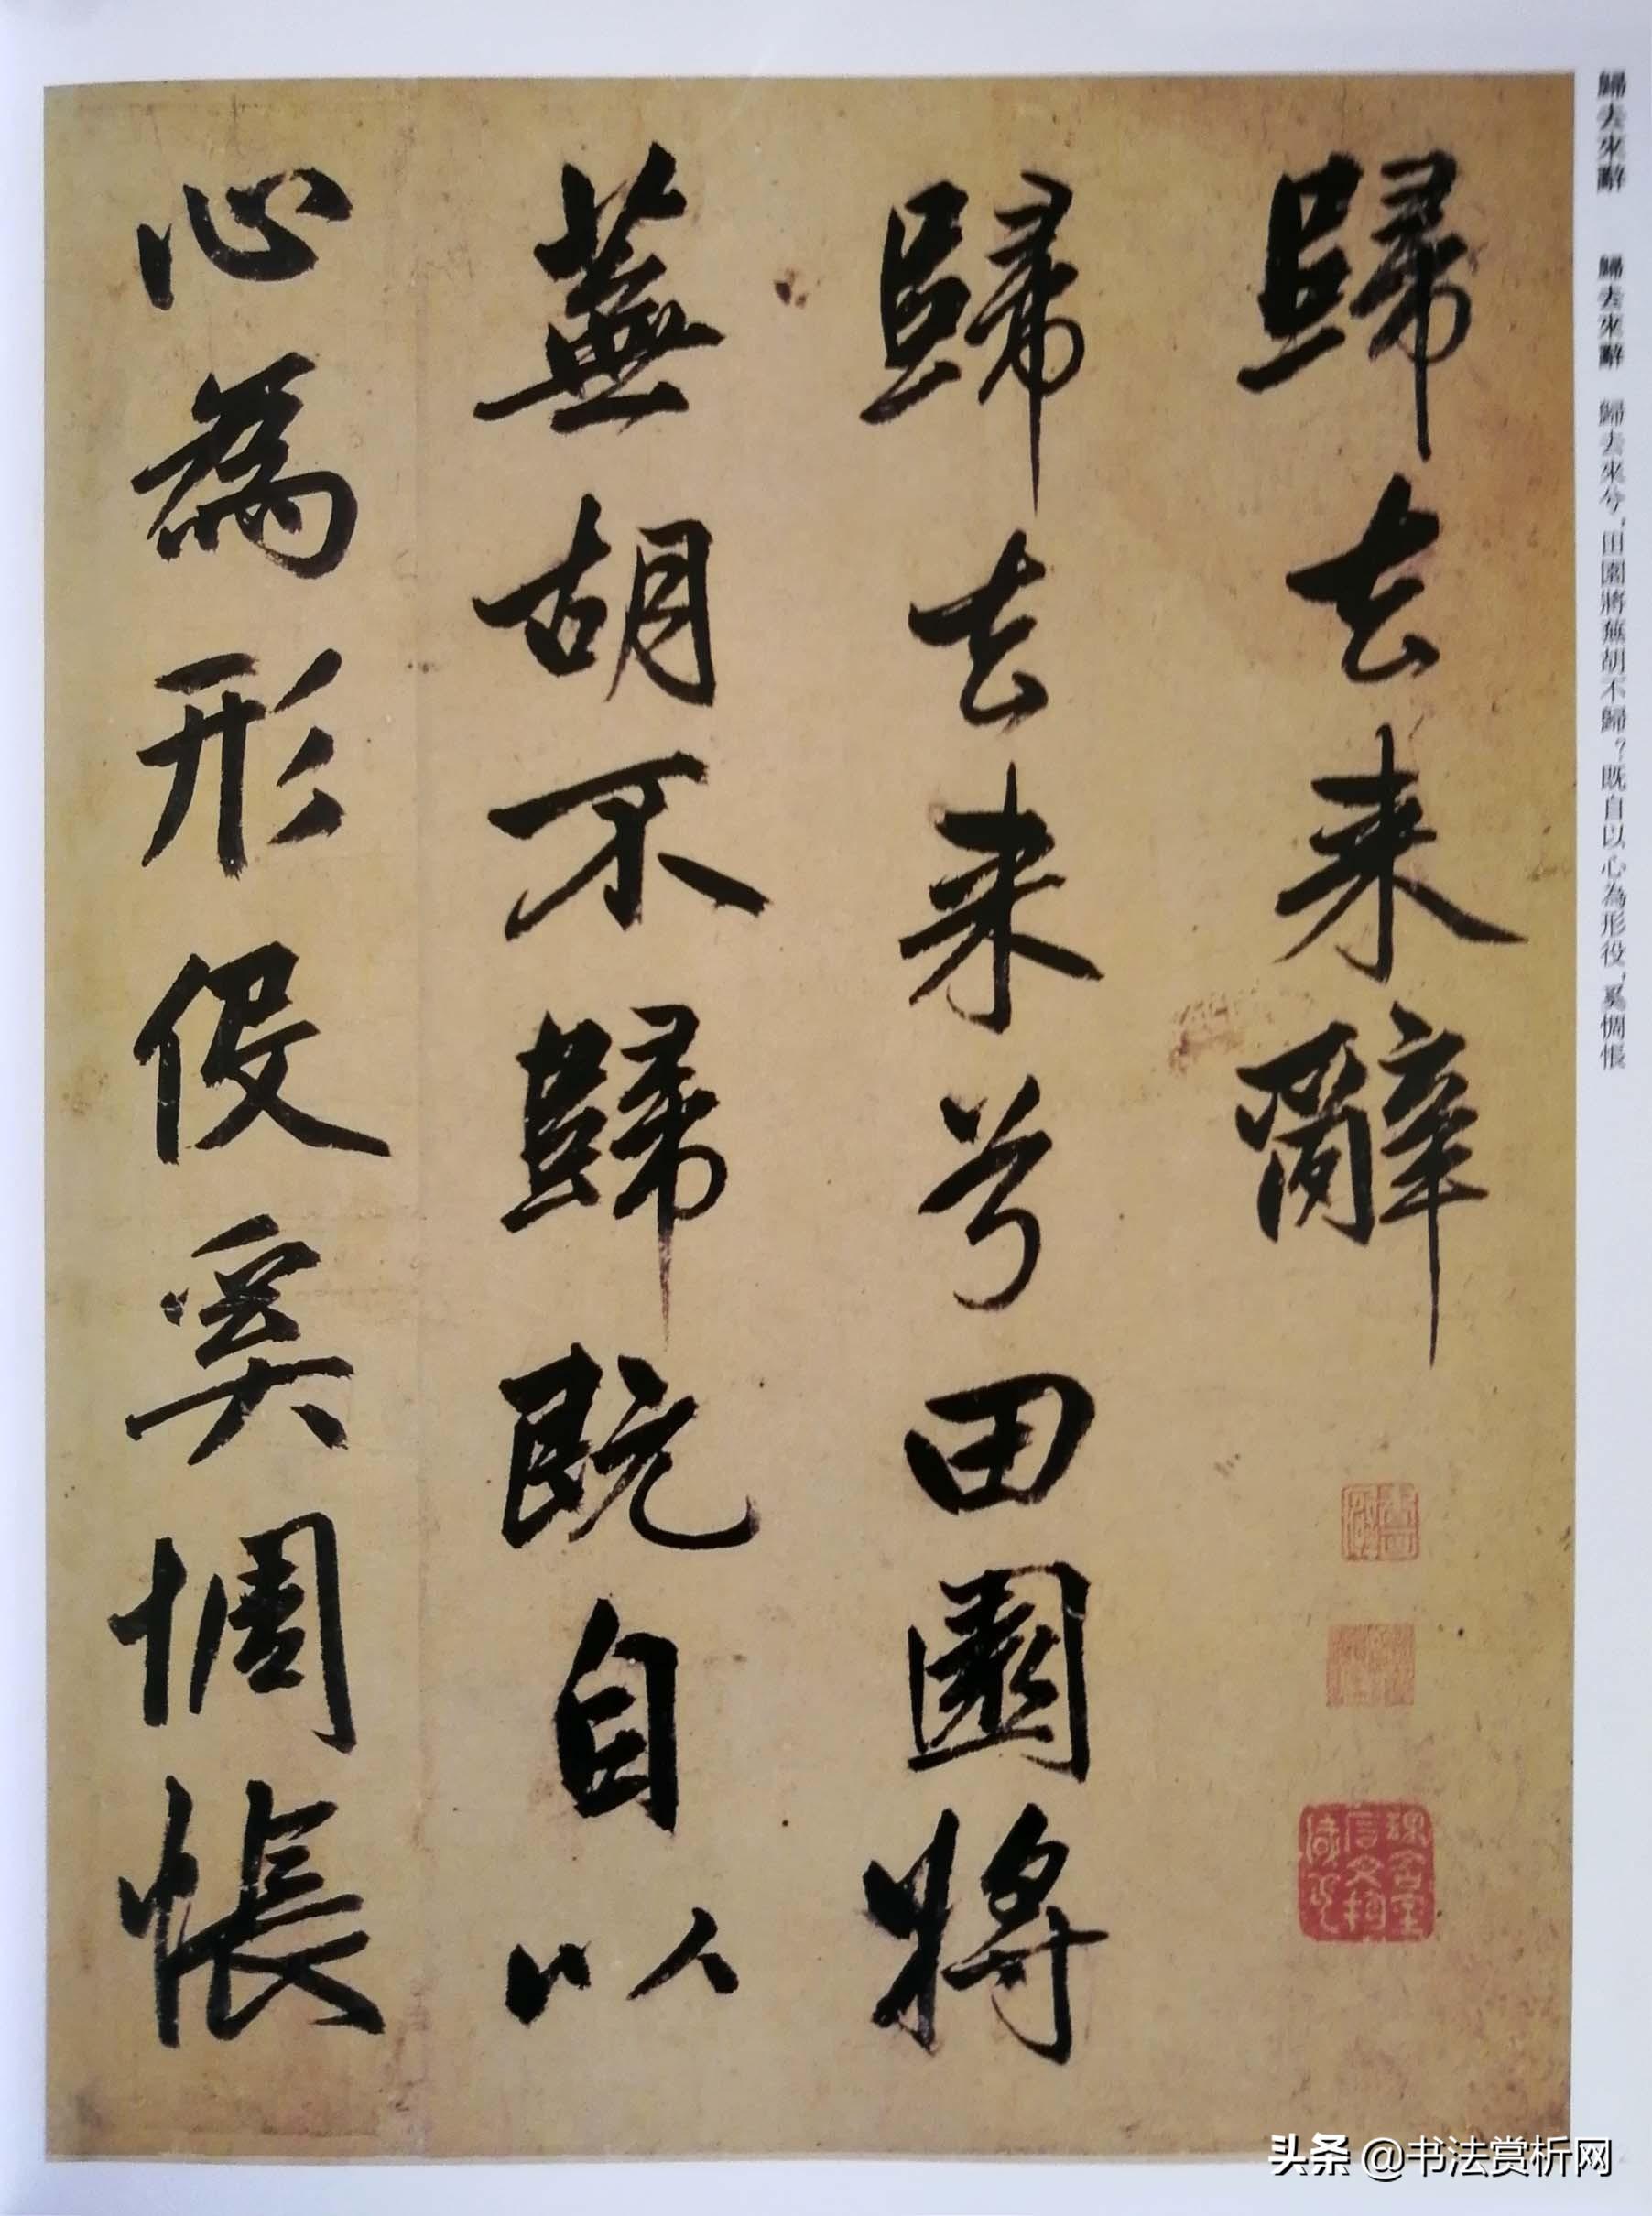 歸去來辭　歸去來辭　歸去來兮，田園將蕪胡不歸？既自以心為形役，奚惆悵
歸去来辭
歸去来兮田園將
蕪胡不歸既自以
心為形役奚惆悵
头条 @书法赏析网